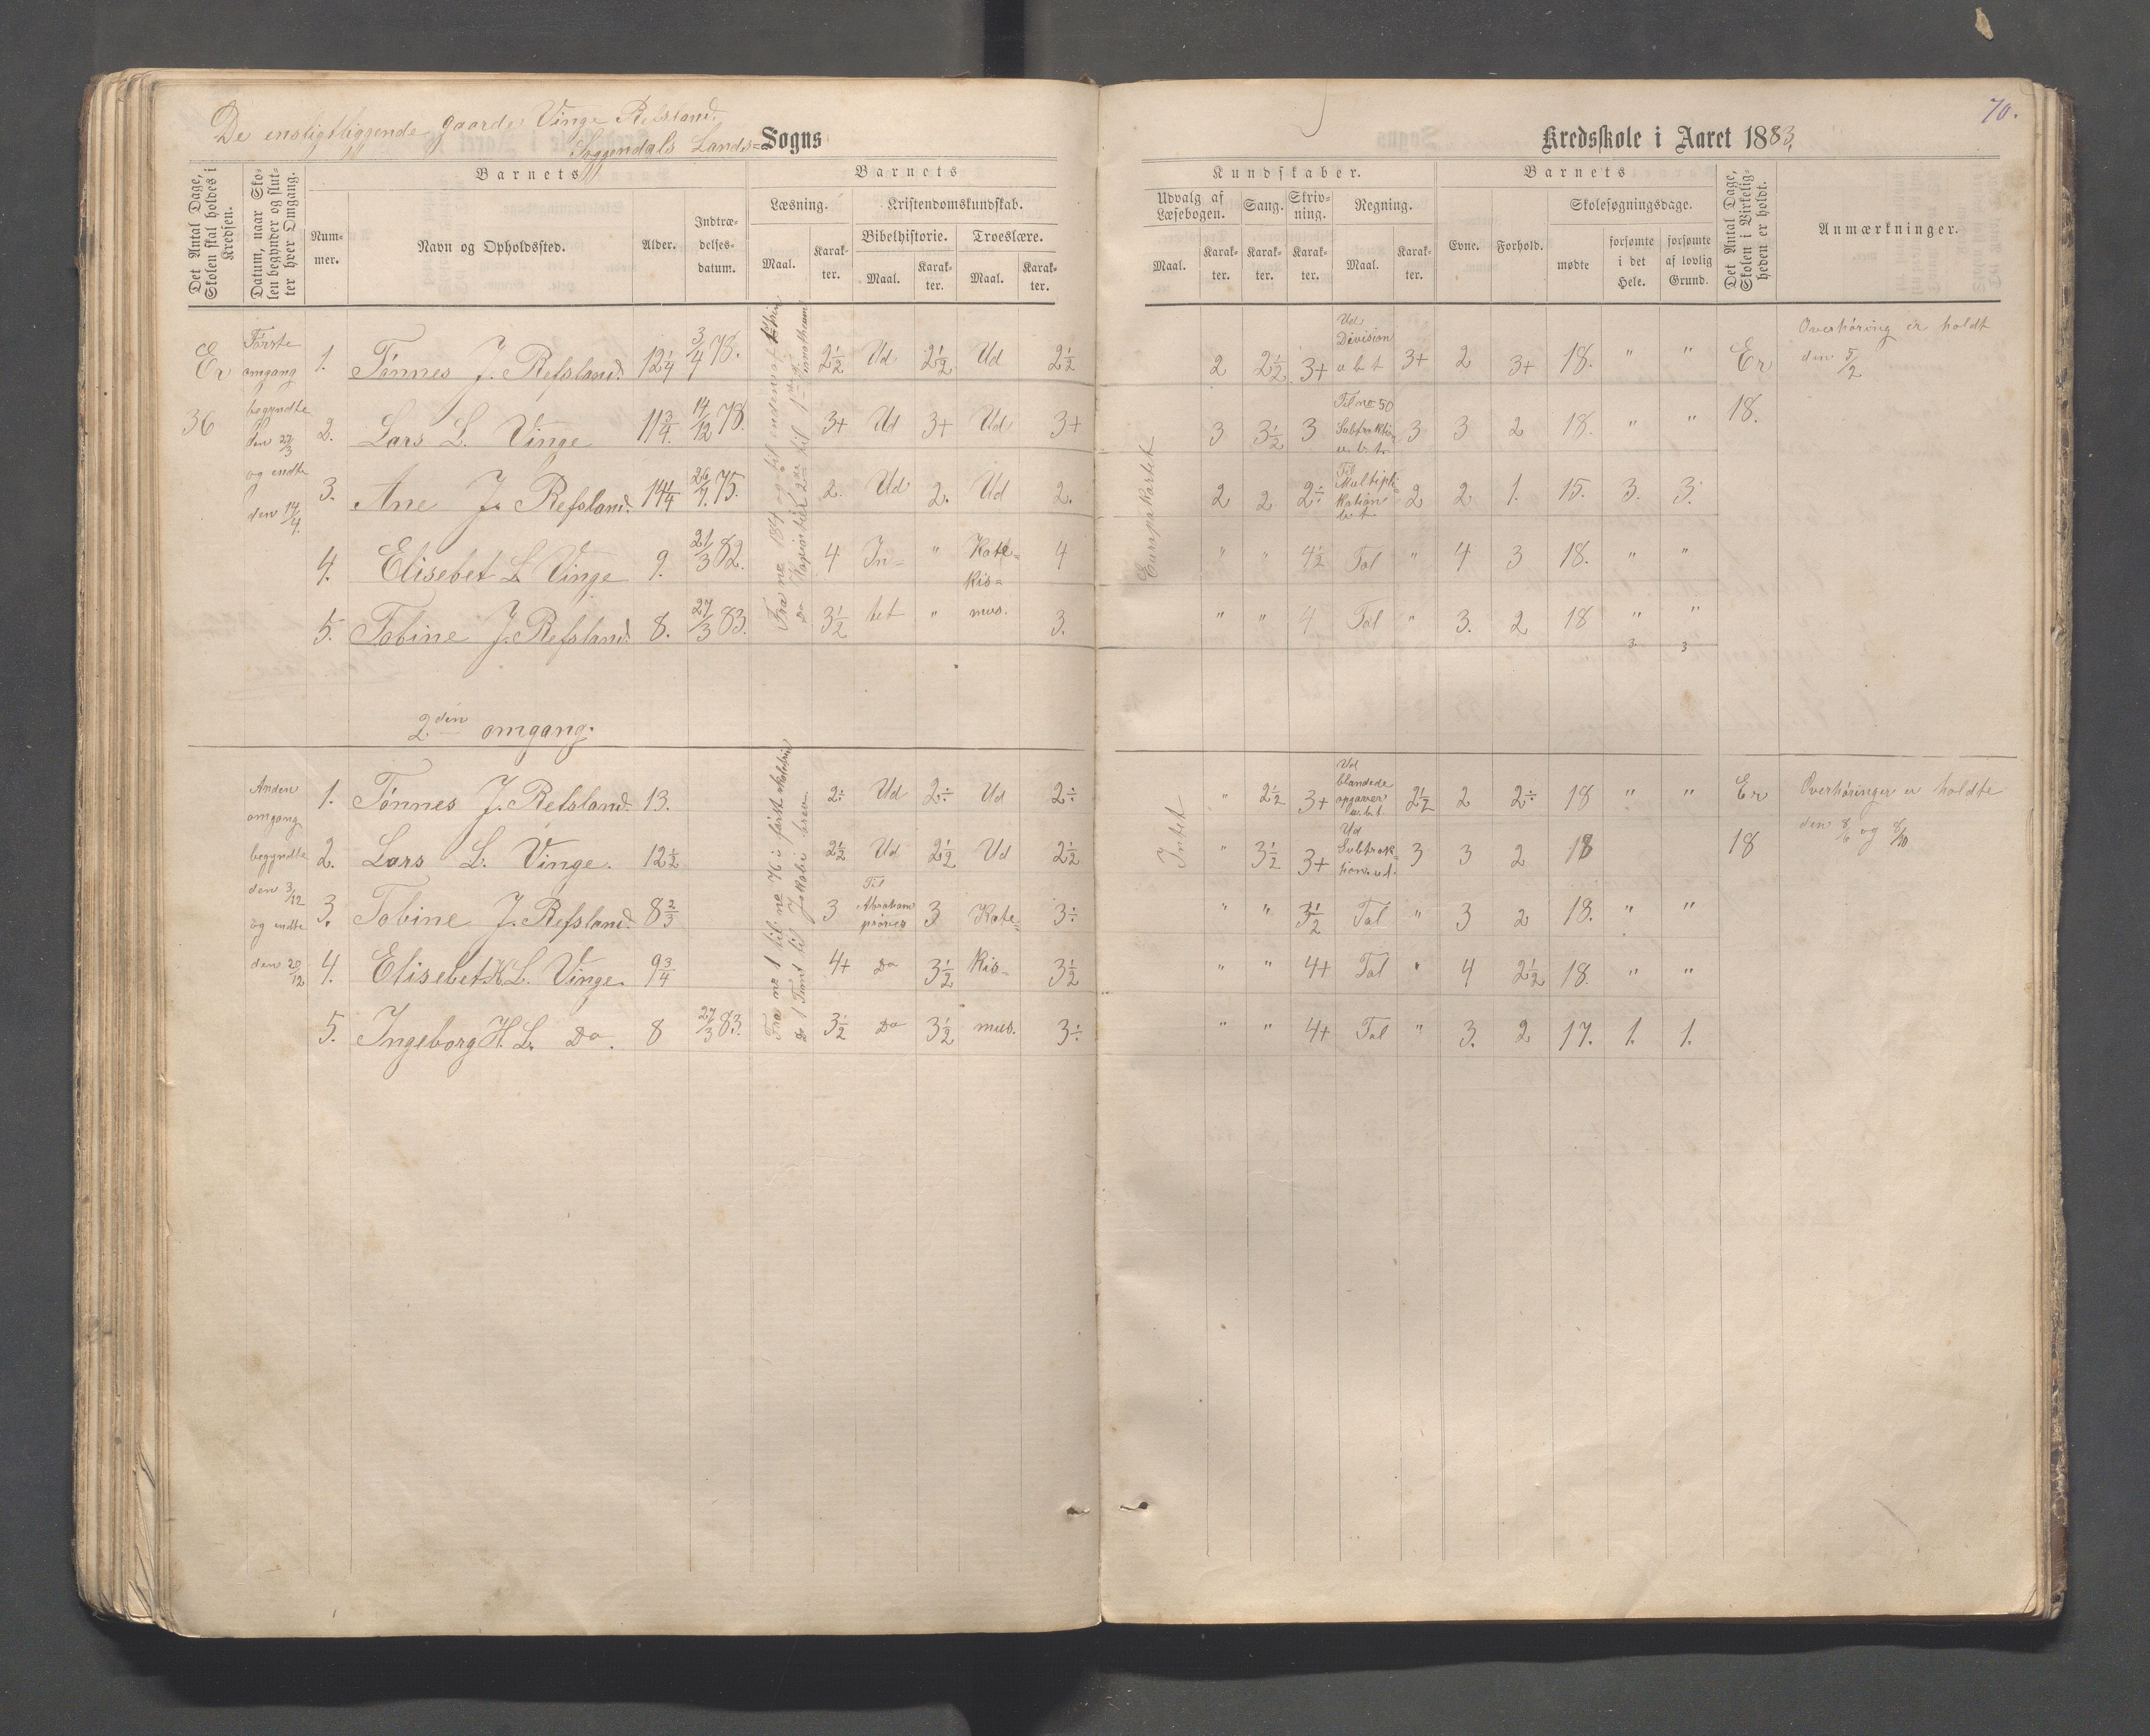 De ensligtliggende gaarde Vinge Refsland.
Soggendals Lands= Sogns
Det Antal Dage, Skolen skal holdes i Kredsen.
Datum, naar Skolen begynder og slutter hver Omgang.
Barnets
Barnets
Nummer.
Navn og Opholdssted.
Alder.
Indtrædelsesdatum.
Læsning.
Kristendomskundskab.
Maal.
Karakter.
Bibelhistorie.
Troeslære.
Maal.
Karakter.
Maal.
Karakter.
Er 36
Første omgang begyndte den 27/3 og endte den 14/4.
1. Tønnes J. Refsland. 12 1/4 3/4 78. 2 1/2 Ud 2 1/2 Ud 2 1/2
2. Lars L. Vinge 11 3/4. 14/12 78. 3+ Ud 3+ Ud 3+
3. Ane J. Refsland. 14 1/4 26/7. 75. 2. Ud 2. Ud 2.
4. Elisebet L. Vinge 9. 21/3 82. 4 In= " Kate= 4
kis=
5. Tobine J. Refsland. 8. 27/3 83. 3 1/2 tet " mus. 3.
2den omgang.
Anden omgang begyndte den 3/12 og endte den 20/12
1. Tønnes J. Refsland. 13. 2÷ Ud 2÷ Ud 2÷
2. Lars L. Vinge. 12 1/2 2 1/2 Ud 2 1/2 Ud 2 1/2
3. Tobine J. Refsland. 8 2/3 3 Til Abraham prøves 3 Kate= 3÷
4. Elisebet K L. Vinge. 9 3/4 4+ Do 3 1/2 kis= 3 1/2
5. Ingeborg H. L. Do. 8 27/3 83. 3 1/2 Do 3 1/2 mus. 3÷
Fra no 1 til no 76 i
Do 1 Timt til Jakobi brev.
70.
Kredsskole i Aaret 1883.
Kundskaber.
Barnets
Det Antal Dage, Skolen i Virkeligheden er holdt.
Anmærkninger.
Udvalg af Læsebogen.
Sang.
Skrivning.
Regning.
Evne.
Forhold.
Skolesøgningsdage.
Maal.
Karakter.
Karakter.
Karakter.
Maal.
Karakter.
mødte
forsømte i det Hele.
forsømte af lovlig Grund.
Europakartet
2 2 1/2 3+ Ud Division u b t 3+ 2 3+ 18. " " Er 18. Overhøring er holdt den 5/2
3 3 1/2 3 Til no 50 Subtraktion u. b. t. 3 3 2 18. " "
2 2 2÷ Til Multiplikation b. t. 2 2 1. 15. 3. 3.
" " 4 1/2 Tal " 4 3 18. " "
" " 4 Tal " 3. 2 18 " "
3. 3
Intet
" 2 1/2 3+ Ud blandede opgaver u. b. t. 2 1/2 2 2÷ 18 " " Er 18 Overhøringer er holdte den 8/6 og 8/10
" 3 1/2 3+ Ud Subtrak= 3 3 2 18
" " 3 1/2 Tal " 3 2 18. " "
" " 4+ Tal " 4 2 1/2 18. " "
" " 4+ Tal " 3. 2 17. 1. 1.